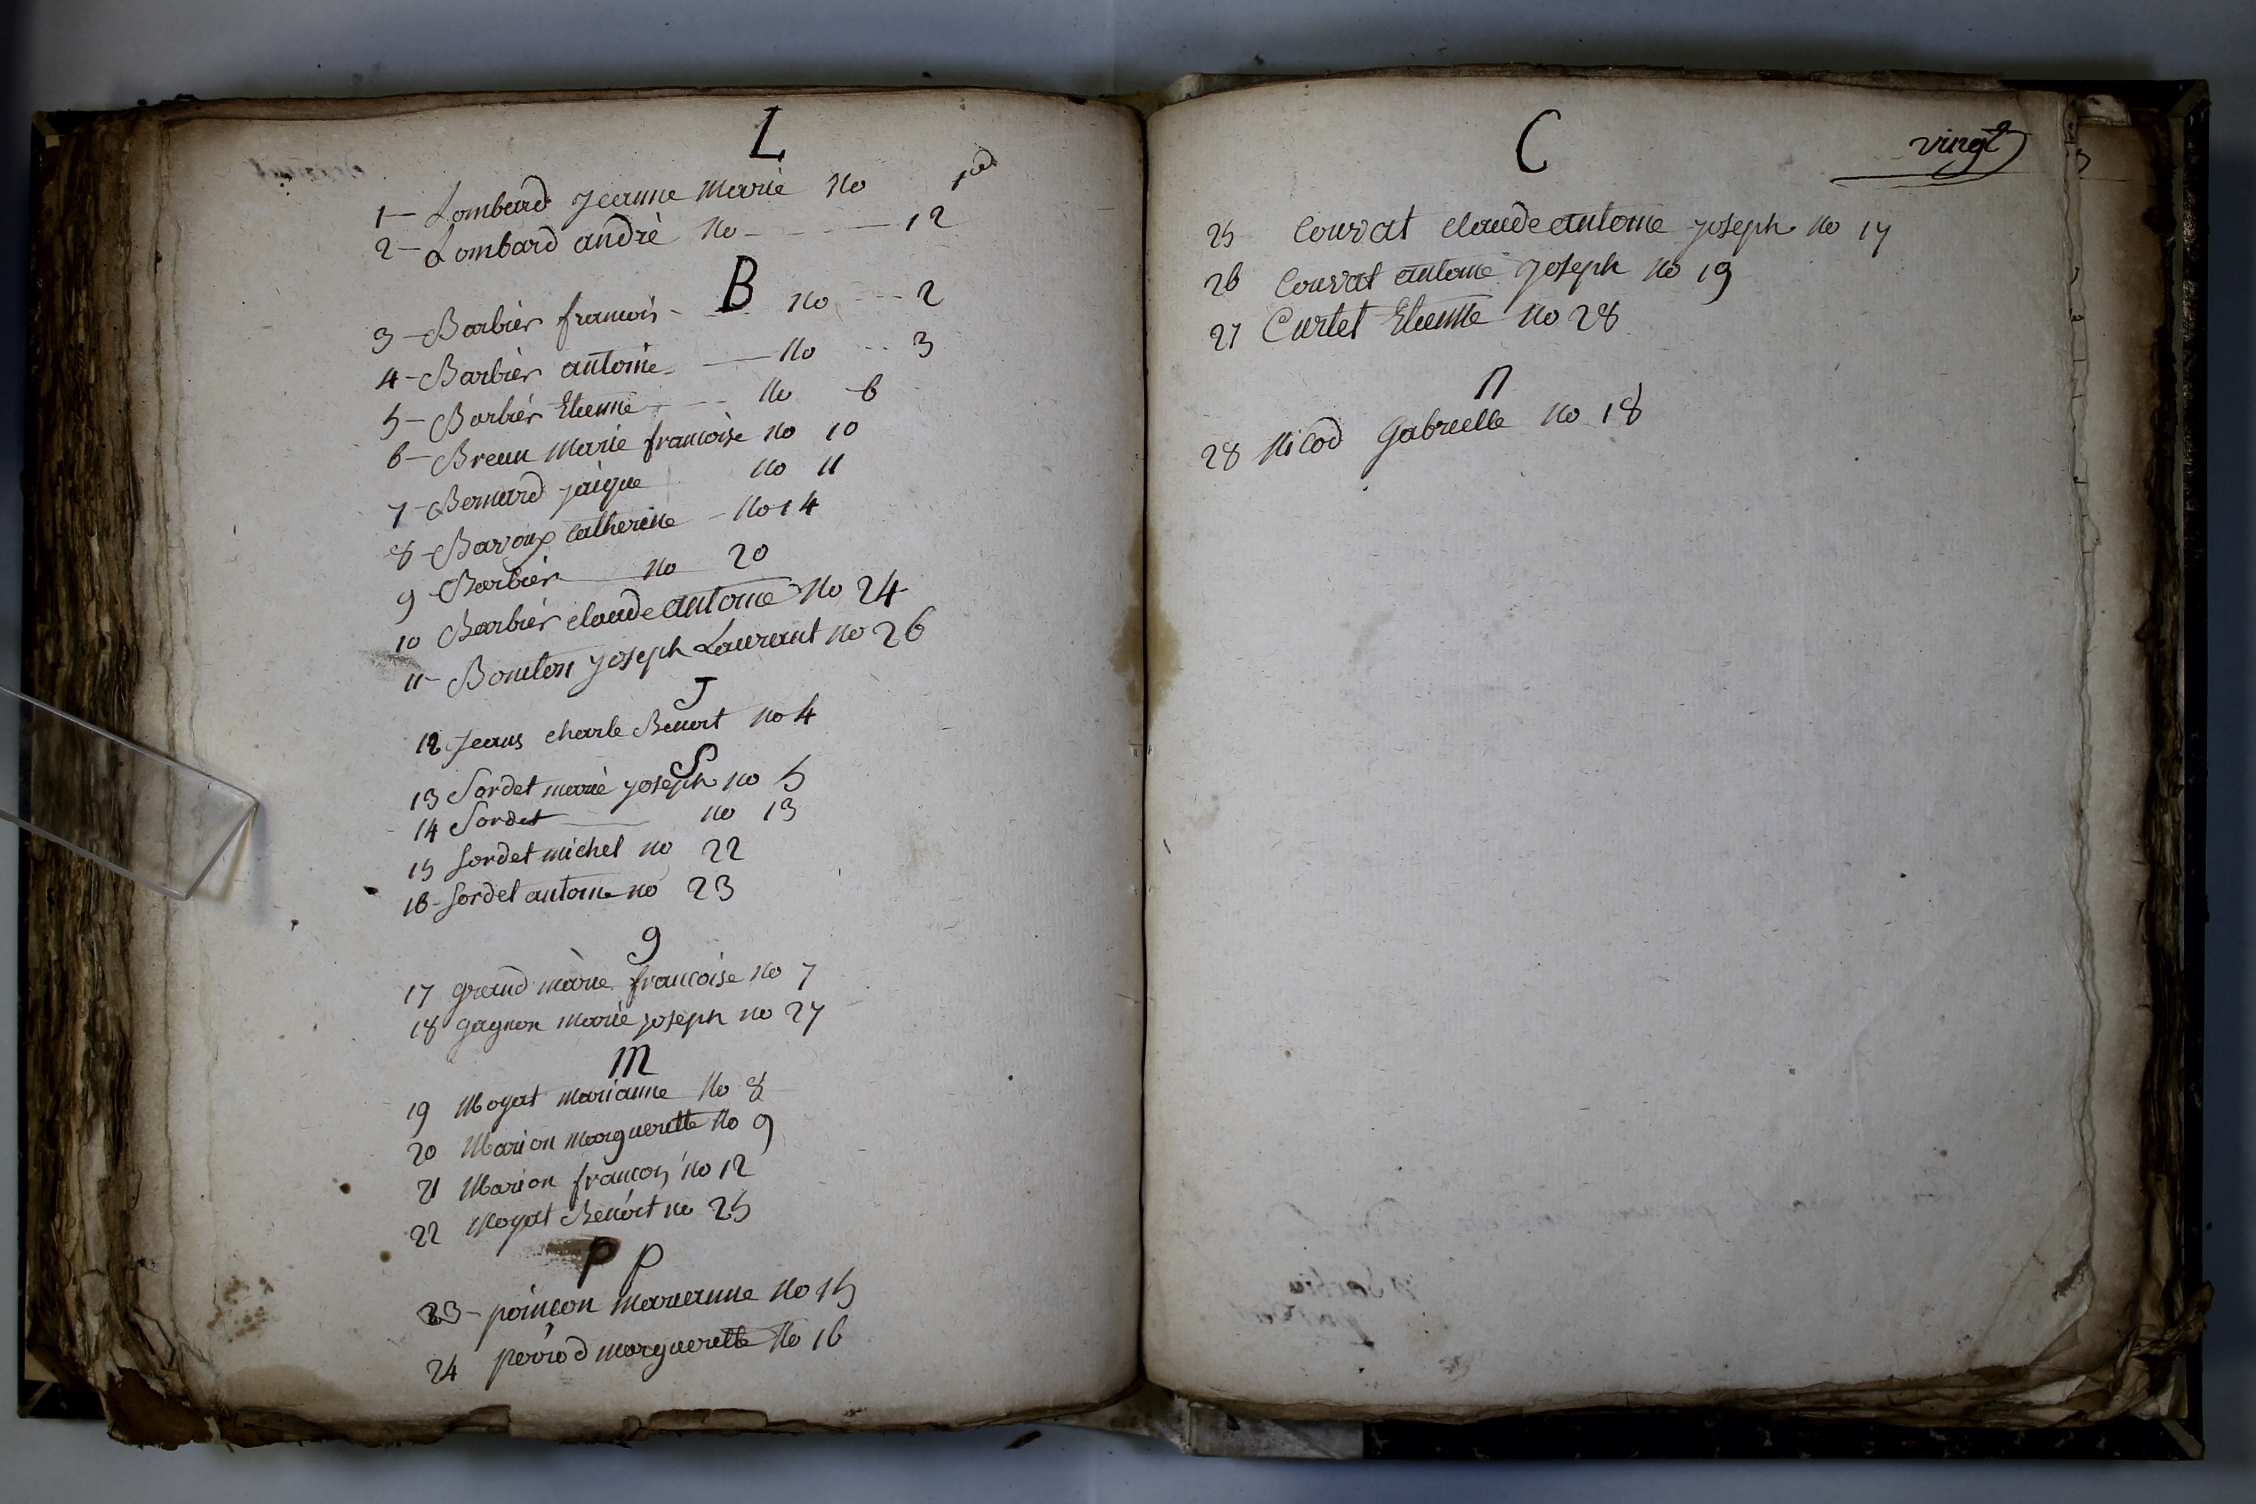 L
1 - Lombard jeanne marie No 1er
2 - Lombard andré No - - - - 12
B
3 - Barbier francois - - No - - - 2
4 - Barbier antoine - - No - - 3
5 - Barbier Etienne - - No 6
6 - Breun marie francoise No 10
7 - Bernard jaique No 11
8 - Bavoux catherine - No 14
9 Barbier No 20
10 Barbier claude antoine No 24
11 - Bouton joseph Laurent No 26
J
12 Jeans charle Benoit No 4
S
13 Sordet marie joseph no 5
14 Sordet no 13
15 Sordet michel no 22
16 - Sordet antoine no 23
g
17 grand marie francoise No 7
18 gagnon marie joseph no 27
m
19 Moyat marianne No 8
20 Marion marguerette No 9
21 Marion francois No 12
22 Moyat Benoit no 25
P P
23 - poincon marianne No 15
24 perrod marguerette No 16
C
vingt
25 Couvat claude antoine joseph no 17
26 Couvat antoine joseph no 19
27 Curtet Etienne no 28
n
28 Nicod Gabrielle no 18